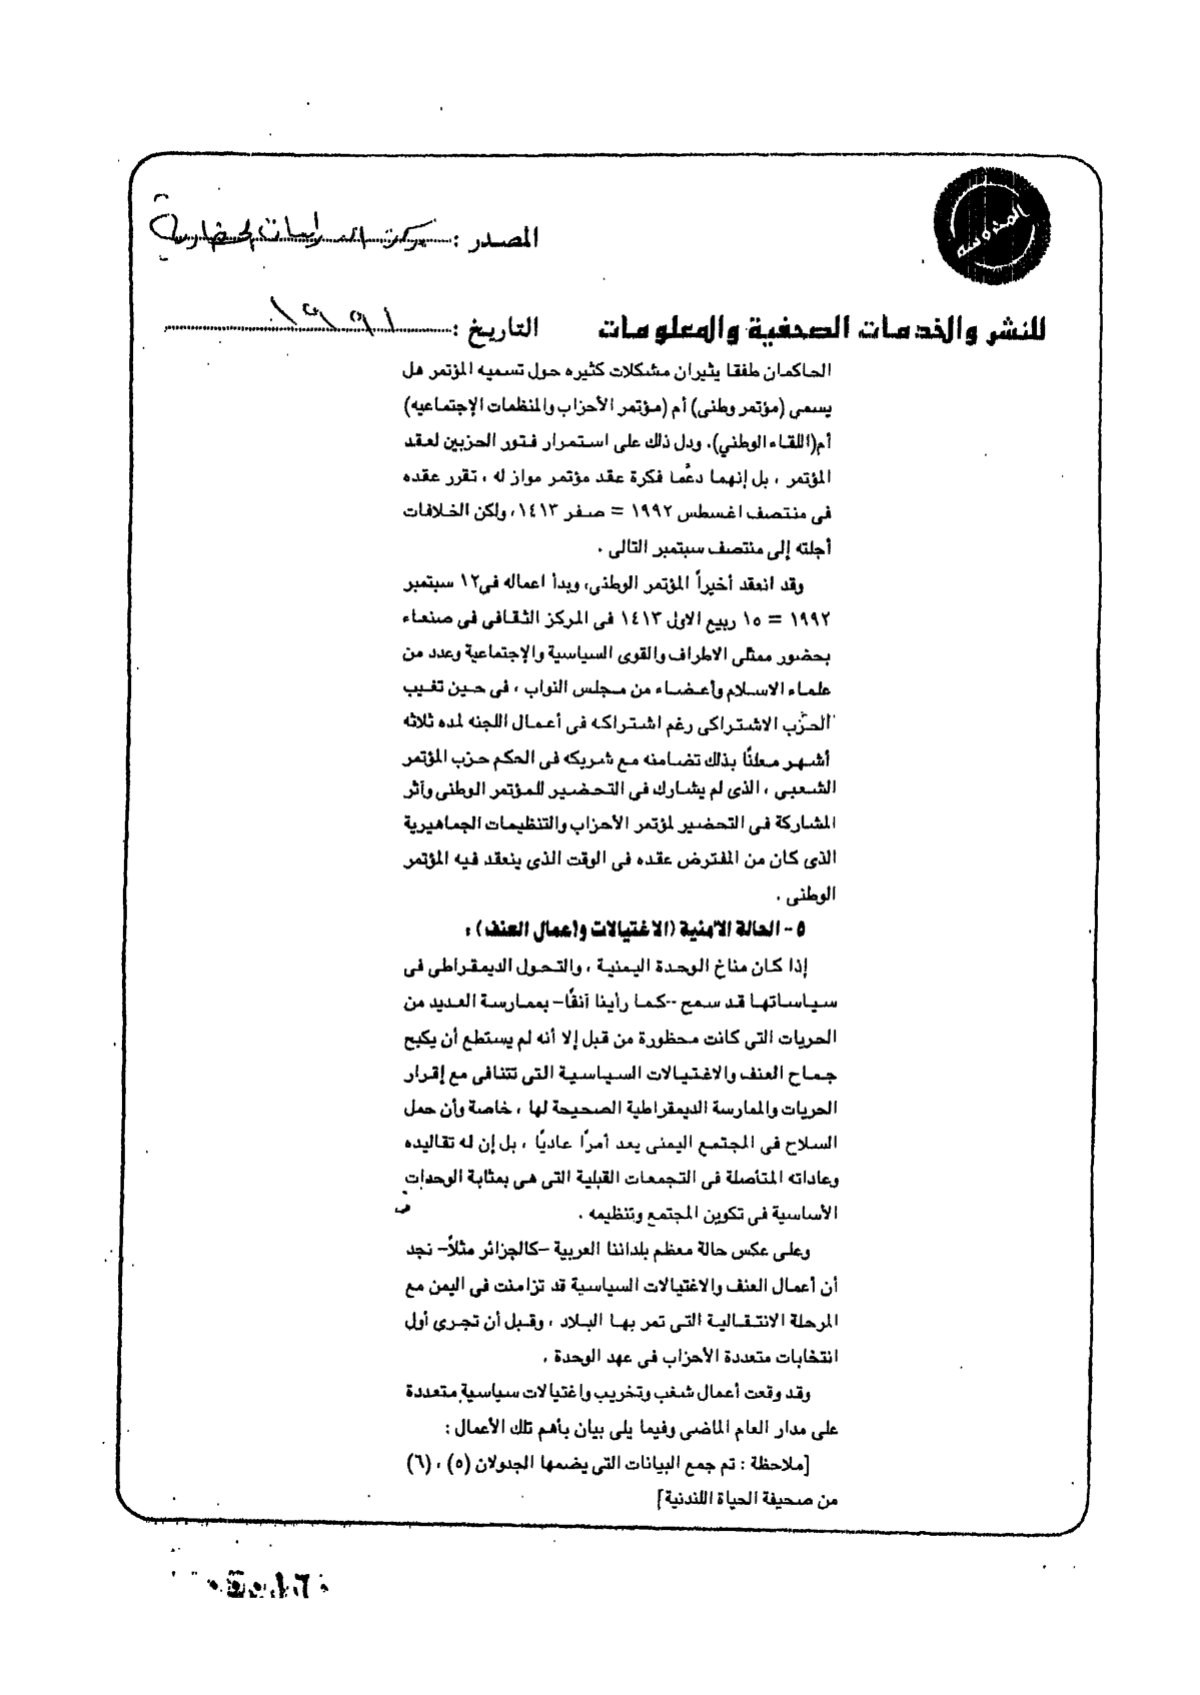 المدوسة
المصدر : مركز الدراسات الحضارية
للنشر والخدمات الصحفية والمعلومات
التاريخ : ١٩٩١
الحاكمان طفقا يثيران مشكلات كثيره حول تسميه المؤتمر هل
يسمى (مؤتمر وطنى) أم (مؤتمر الأحزاب والمنظمات الإجتماعيه)
أم(اللقاء الوطني). ودل ذلك على استمرار فتور الحزبين لعقد
المؤتمر ، بل إنهما دعُما فكرة عقد مؤتمر مواز له ، تقرر عقده
فى منتصف اغسطس ١٩٩٢ = صفر ١٤١٣، ولكن الخلافات
أجلته إلى منتصف سبتمبر التالى .
وقد انعقد أخيراً المؤتمر الوطنى، وبدأ اعماله فى١٢ سبتمبر
١٩٩٢ = ١٥ ربيع الاول ١٤١٣ فى المركز الثقافى فى صنعاء
بحضور ممثلى الاطراف والقوى السياسية والإجتماعية وعدد من
علماء الاسلام وأعضاء من مجلس النواب ، فى حين تغيب
الحزب الاشتراكى رغم اشتراكه فى أعمال اللجنه لمده ثلاثه
أشهر معلنًا بذلك تضامنه مع شريكه فى الحكم حزب المؤتمر
الشعبي ، الذى لم يشارك فى التحضير للمؤتمر الوطنى وآثر
المشاركة فى التحضير لمؤتمر الأحزاب والتنظيمات الجماهيرية
الذى كان من المفترض عقده فى الوقت الذى ينعقد فيه المؤتمر
الوطنى .
٥ - الحالة الأمنية (الاغتيالات وأعمال العنف) :
إذا كان مناخ الوحدة اليمنية ، والتحول الديمقراطى فى
سياساتها قد سمح -كما رأينا آنفًا- بممارسة العديد من
الحريات التي كانت محظورة من قبل إلا أنه لم يستطع أن يكبح
جماح العنف والاغتيالات السياسية التى تتنافى مع إقرار
الحريات والممارسة الديمقراطية الصحيحة لها ، خاصة وأن حمل
السلاح فى المجتمع اليمنى يعد أمرًا عاديًا ، بل إن له تقاليده
وعاداته المتأصلة فى التجمعات القبلية التى هى بمثابة الوحدات
الأساسية فى تكوين المجتمع وتنظيمه .
وعلى عكس حالة معظم بلداننا العربية -كالجزائر مثلاً- نجد
أن أعمال العنف والاغتيالات السياسية قد تزامنت فى اليمن مع
المرحلة الانتقالية التى تمر بها البلاد ، وقبل أن تجرى أول
انتخابات متعددة الأحزاب فى عهد الوحدة .
وقد وقعت أعمال شغب وتخريب واغتيالات سياسية متعددة
على مدار العام الماضى وفيما يلى بيان بأهم تلك الأعمال :
[ملاحظة : تم جمع البيانات التى يضمها الجدولان (٥) ، (٦)
من صحيفة الحياة اللندنية]